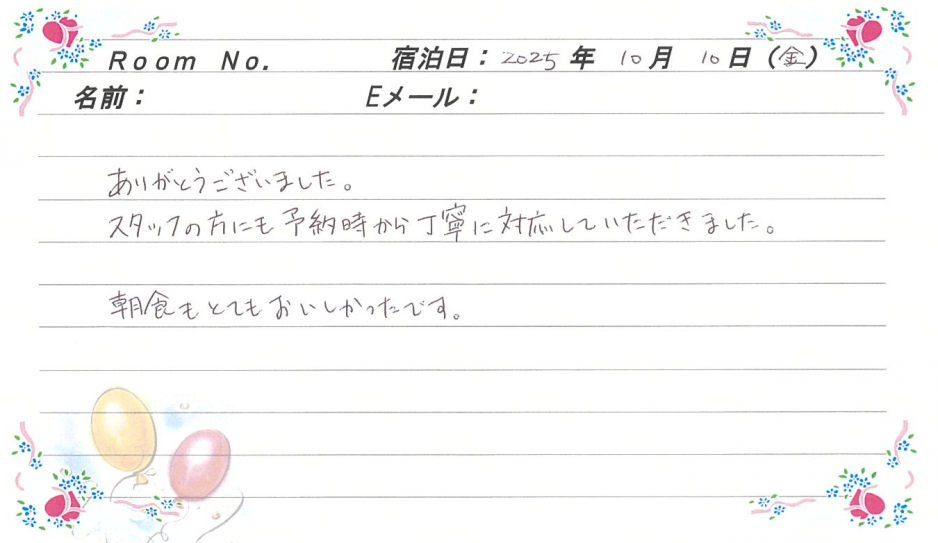 Room No. 宿泊日：2025年 10月 10日（金）
名前： Eメール：
ありがとうございました。
スタッフの方にも予約時から丁寧に対応していただきました。
朝食もとてもおいしかったです。